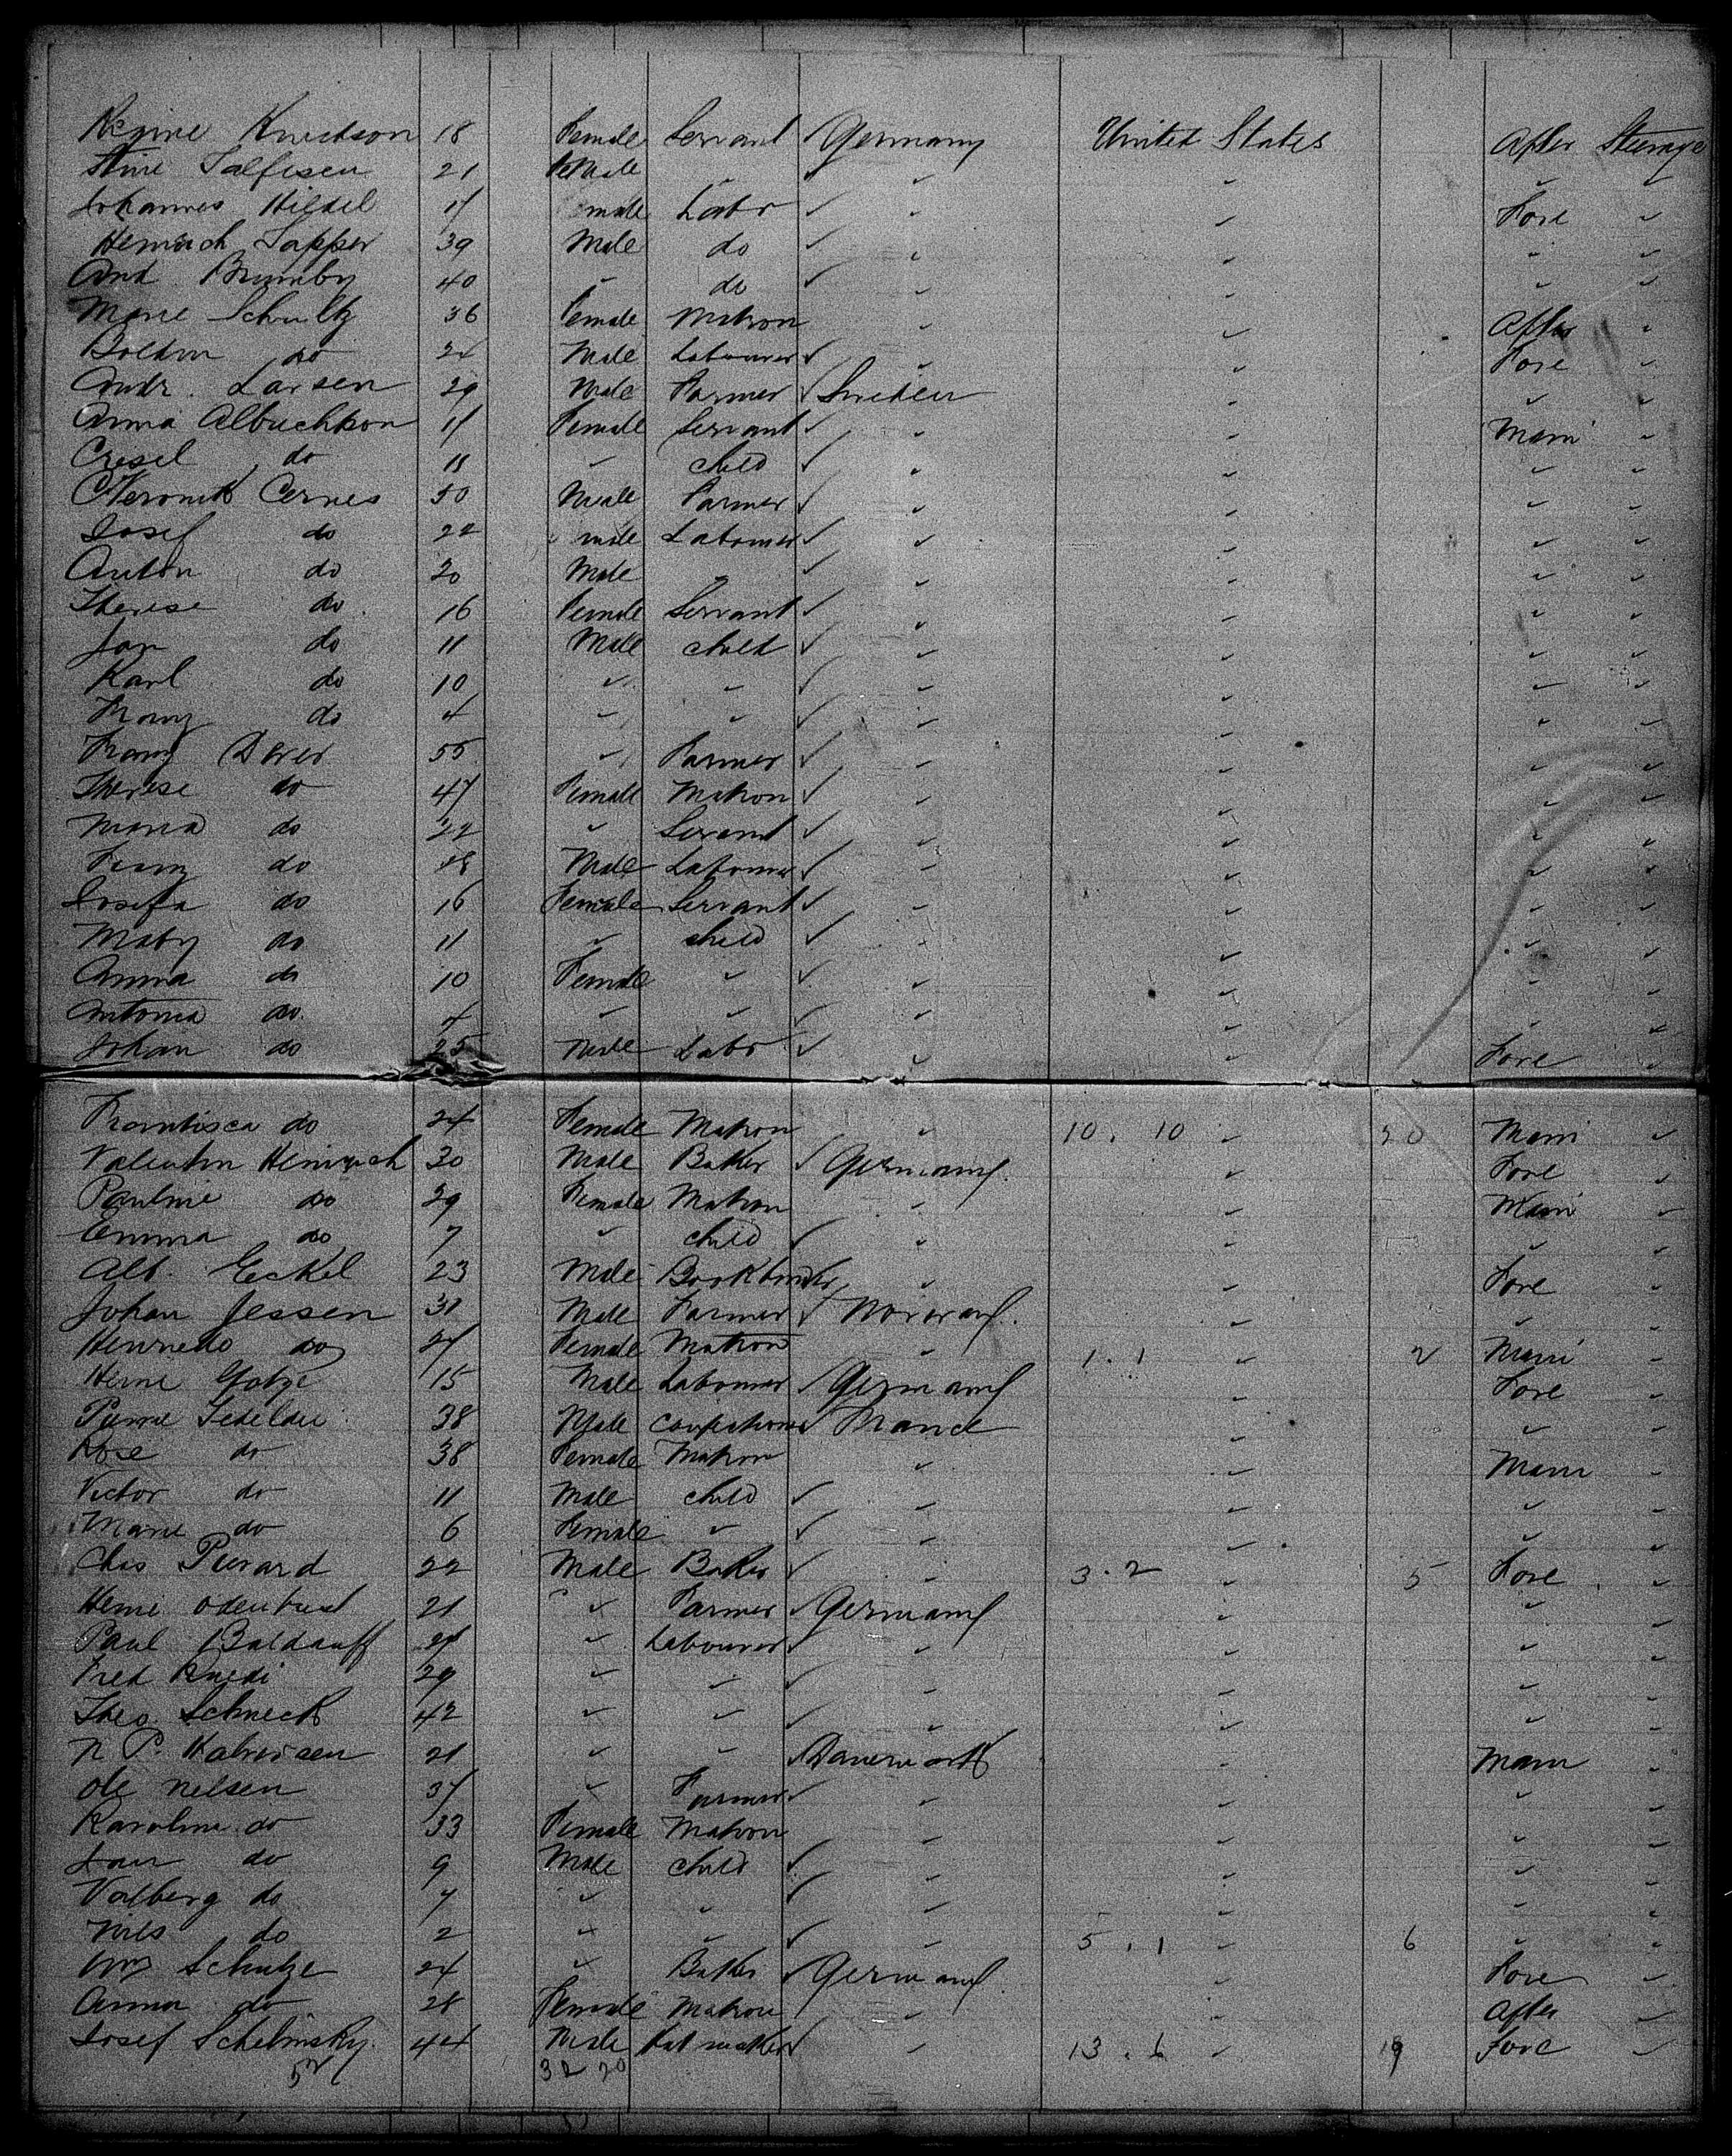 Regine Knudson 18 Female Servant ✓ Germany United States After Steerage
Stine Salfesen 21 Female " ✓ " " " "
Johannes Hildel 17 male Labr ✓ " " Fore "
Heinrich Sapper 39 Male do ✓ " " " "
And Brumby 40 " do ✓ " " " "
Marie Schultz 36 Female Matron " " After "
Boldin do 24 Male Labourer ✓ " " Fore "
Andr. Larsen 29 Male Farmer ✓ Sweden " " "
Anna Albuchkon 11 Female Servant ✓ " " Main "
Cresel do 11 " child ✓ " " " "
Cernes 50 Male Farmer ✓ " " " "
Josef do 22 male Labourer ✓ " " " "
Anton do 20 Male " ✓ " " " "
Therese do 16 Female Servant ✓ " " " "
Jan do 11 Male child ✓ " " " "
Karl do 10 " " ✓ " " " "
Franz do 4 " " ✓ " " " "
Franz Dover 55 " Farmer ✓ " " " "
Therese do 47 Female Matron ✓ " " " "
Maria do 22 " Servant ✓ " " " "
Franz do 18 Male Labourer ✓ " " " "
Josefa do 16 Female Servant ✓ " " " "
Maby do 11 " child ✓ " " " "
Anna do 10 Female " ✓ " " " "
Antonia do 4 " " ✓ " " " "
Johan do 25 Male Labr ✓ " " Fore "
Frantisca do 24 Female Matron " 10. 10 " 20 Main "
Valentin Heinrich 30 Male Baker ✓ Germany " Fore "
Pauline do 29 Female Matron " " Main "
Emma do 7 " child ✓ " " " "
Alb. Eckel 23 Male Bookbinder " " Fore
Johan Jessen 31 Male Farmer ✓ Norway " " "
do 27 Female Matron " 1. 1 " 2 Main "
Heine Gotze 15 Male Labourer ✓ Germany " Fore "
38 Male Confectioner ✓ France " " "
Rose do 38 Female Matron " " Main "
Victor do 11 Male child ✓ " " " "
Marie do 6 Female " ✓ " " " "
Chas Pierard 22 Male Baker ✓ " 3. 2 " 5 Fore "
Heine 21 " Farmer ✓ Germany " " "
Paul Baldauff 27 " Labourer ✓ " " " "
Fred Ruedi 29 " " ✓ " " " "
Theo. Schneck 42 " " ✓ " " " "
N P. Halvorsen 21 " " ✓ Danemark " Main "
Ole Nelsen 37 " Farmer ✓ " " " "
Karoline do 33 Female Matron " " " "
Jan do 9 Male child ✓ " " " "
Valberg do 7 " " ✓ " " " "
Nils do 2 " " ✓ " 5. 1 " 6 " "
Wm Schulze 24 " Baker ✓ Germany " Fore "
Anna do 28 Female Matron " " After "
Josef Schelinsky 44 Male Hat maker ✓ " 13. 6 " 19 Fore "
52 32 20